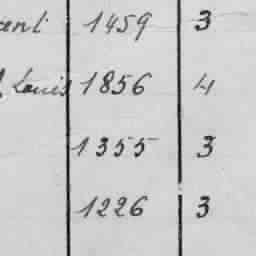 1459 3
Louis 1856 4
1355 3
1226 3